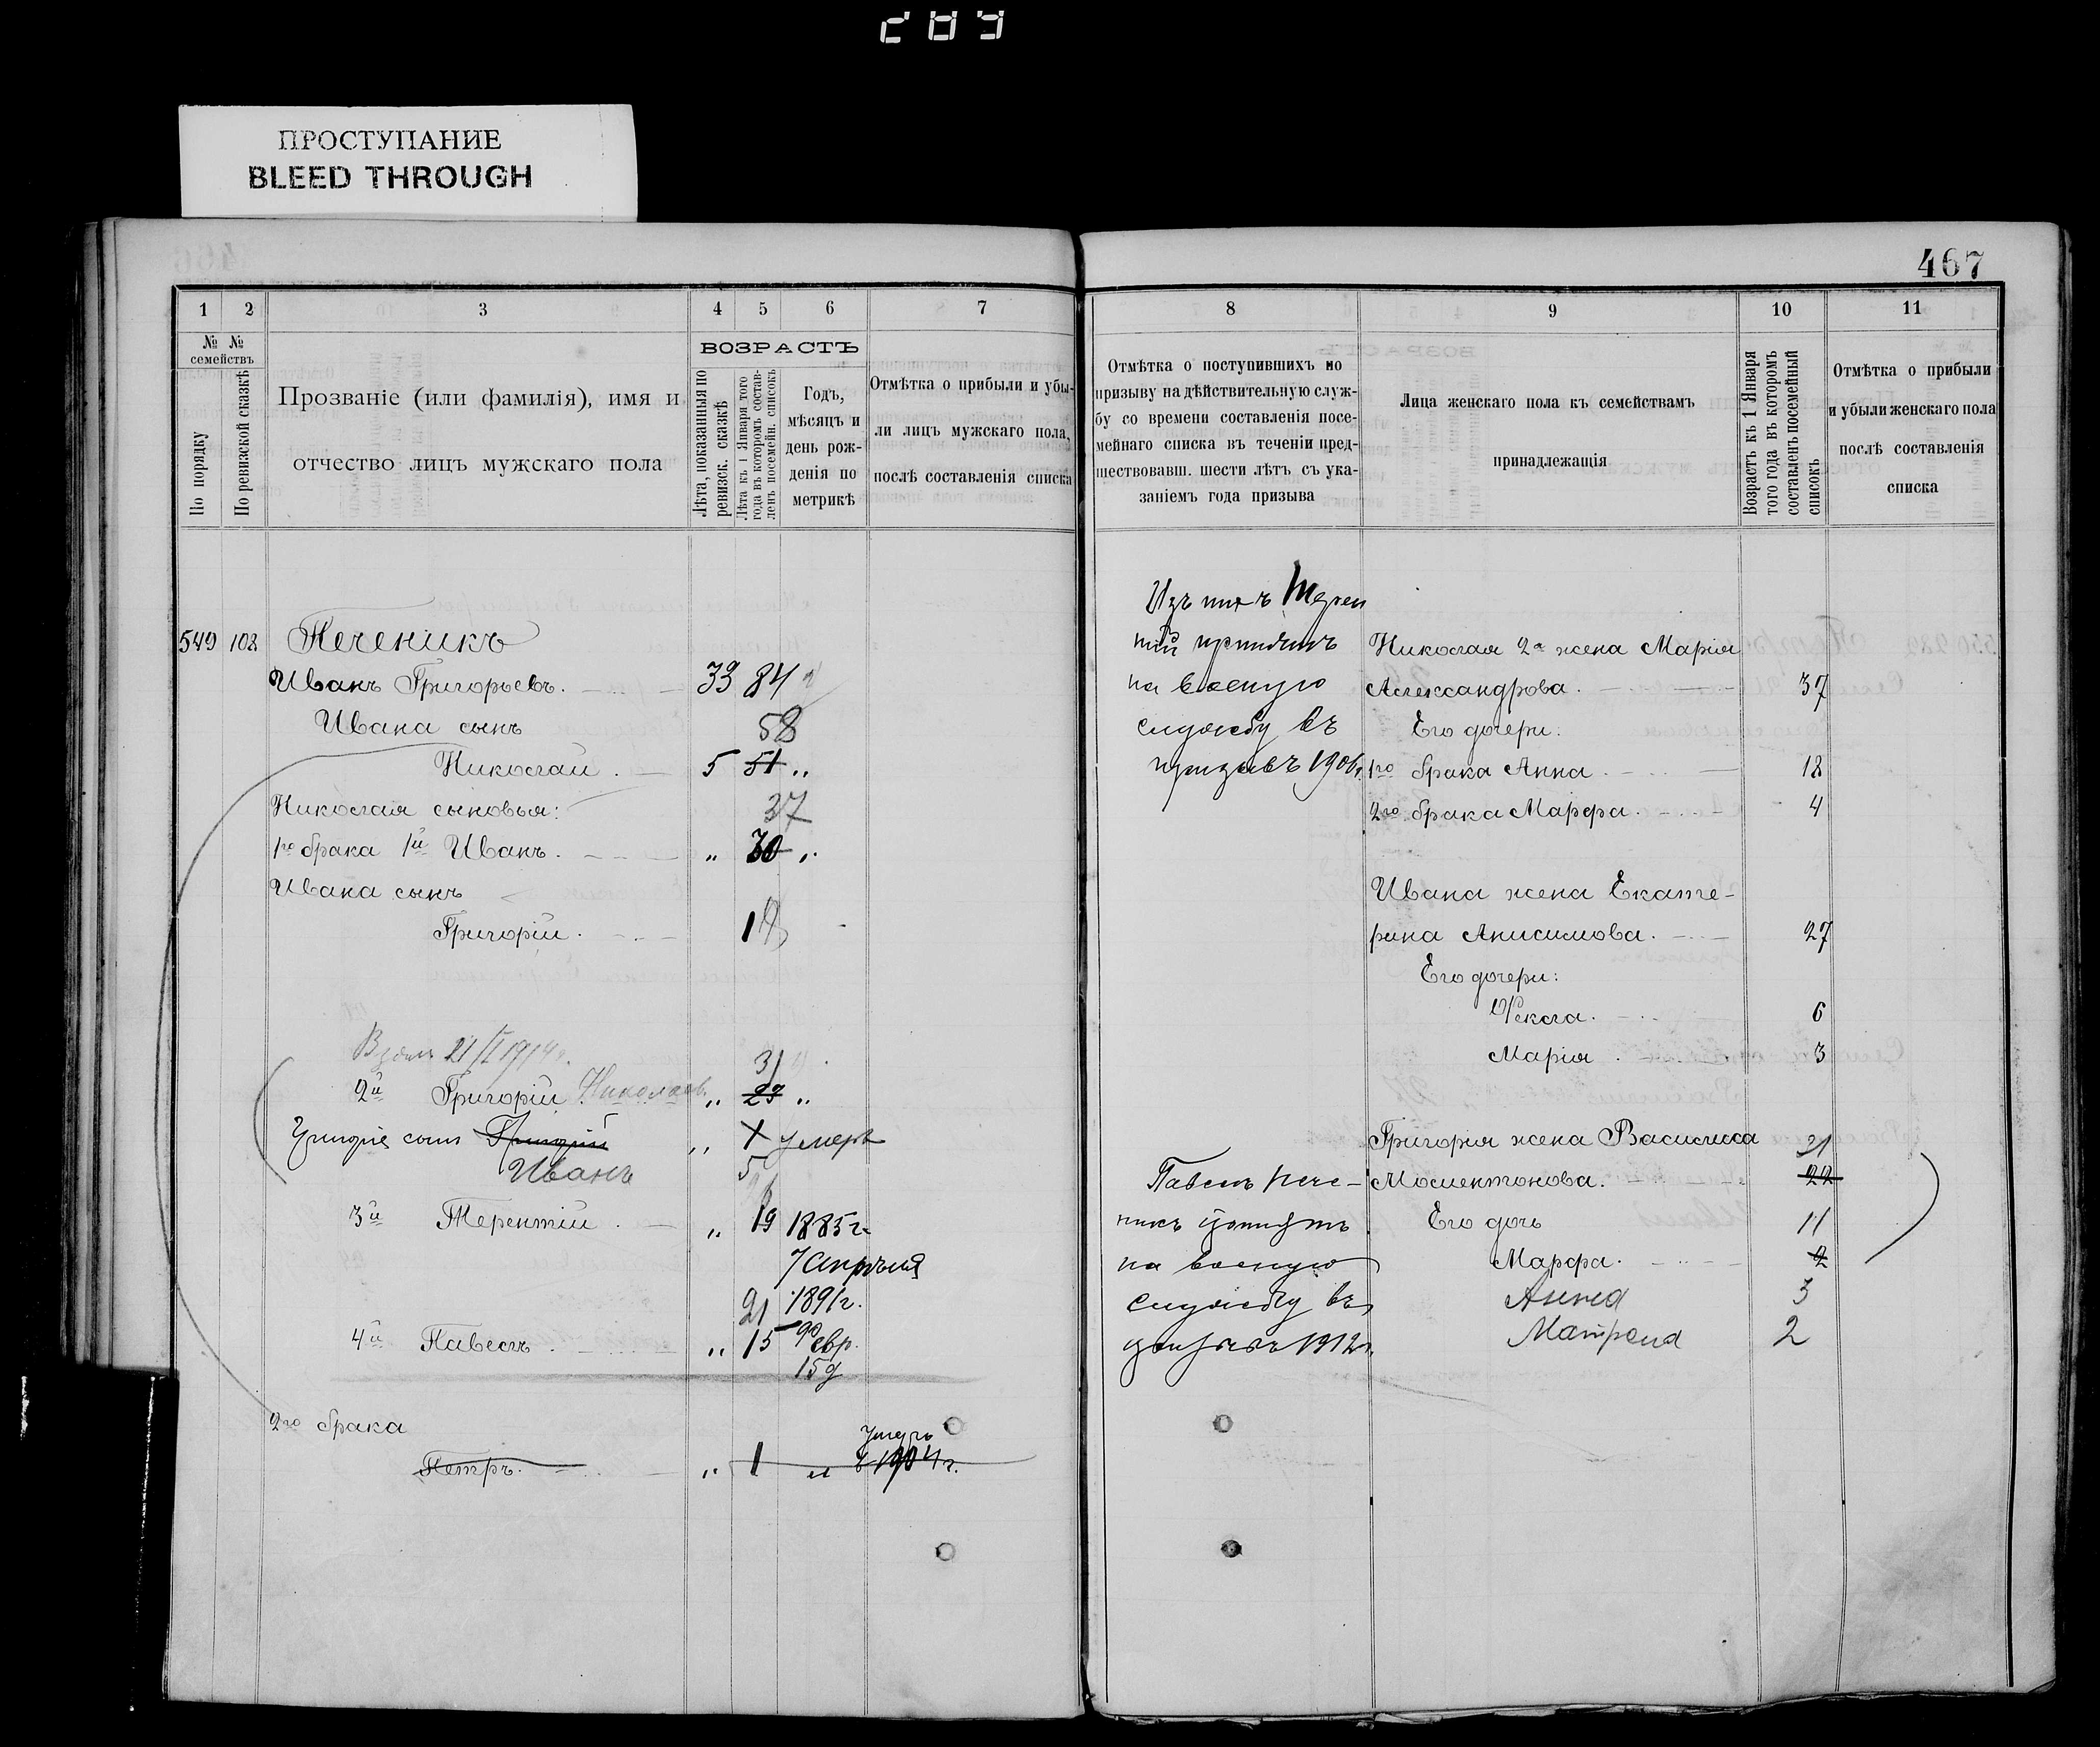 289
ПРОСТУПАНИЕ
BLEED THROUGH
467
1 2 3 4 5 6 7
№ № семействъ
По порядку
По ревизской сказкѣ
Прозваніе (или фамилія), имя и
отчество лицъ мужскаго пола
ВОЗРАСТЪ
Лѣта, показанныя по
ревизск. сказкѣ
Лѣта къ 1 Января того
года въ которомъ состав-
ленъ посемейн. списокъ
Годъ,
мѣсяцъ и
день рож-
денія по
метрикѣ
Отмѣтка о прибыли и убы-
ли лицъ мужскаго пола,
послѣ составленія списка
549 108 Печеникъ
Иванъ Григорьевъ. 39 84
Ивана сынъ 58
Николай. 5 51 „
Николая сыновья: 37
1го брака 1й Иванъ. „ 30 „
Ивана сынъ
Григорій. 1
21/I 1914г. 31
2й Григорій Николаев. „ 29 „
Григорія сынъ Григорій „ 1 умеръ
Иванъ 5
3й Терентій. „ 19 1885г.
7 Апрѣля
21 1891г.
4й Павелъ. „ 15 Февр.
15 д
2го брака
умеръ
Петръ. „ 1 „ в 1904 г.
8 9 10 11
Отмѣтка о поступившихъ по
призыву на дѣйствительную служ-
бу со времени составленія посе-
мейнаго списка въ теченіи пред-
шествовавш. шести лѣтъ съ ука-
заніемъ года призыва
Лица женскаго пола къ семействамъ
принадлежащія
Возрастъ къ 1 Января
того года въ которомъ
составленъ посемейный
списокъ
Отмѣтка о прибыли
и убыли женскаго пола
послѣ составленія
списка
Изъ нихъ Терен
тій принятъ
на военную
службу въ
призывъ 1906г.
Николая 2я жена Марія
Александрова. 37
Его дочери:
1го брака Анна. 18
2го брака Марфа. 4
Ивана жена Екате-
рина Анисимова. 27
Его дочери:
Фекла. 6
Марія. 3
Григорія жена Василиса 31
Моментонова. 22
Его дочь 11
Марфа. 2
Анна 3
Матрена 2
Павелъ Пече-
никъ принятъ
на военную
службу въ
призывъ 1912г.